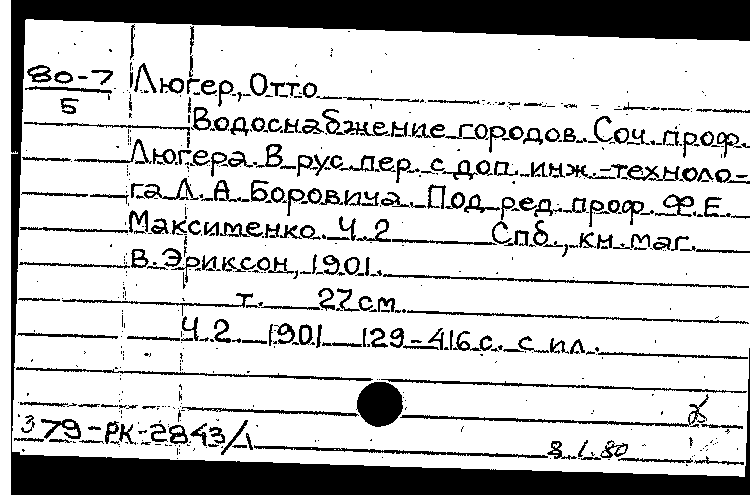 80-7 Люгер, Отто
5
Водоснабжение городов. Соч. проф.
Люгера. В рус. пер. с доп. инж.-техноло-
га Л. А. Боровича. Под ред. проф. Ф. Е.
Максименко. Ч. 2 Спб., кн. маг.
В. Эриксон, 1901.
т. 27 см.
Ч. 2. 1901 129-416 с. с ил.
379-РК-2843/1
8.1.80